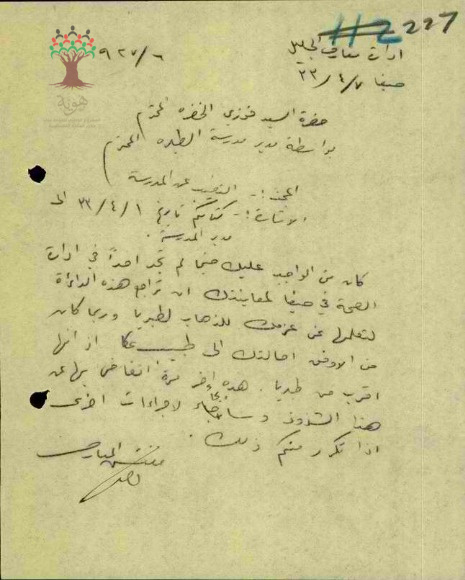 112 227
ادارة معارف الجليل
صيفا ٧/٤/٣٣
٩٢٧/٦
هوية
حضرة السيد فوزي الخضره المحترم
بواسطة مدير مدرسة الطيره المحترم
المبحث :- التغيب عن المدرسة
الاشارة :- كتابكم تاريخ ١/٤/٣٣ الى
مدير المدرسة .
كان من الواجب عليك حينما لم تجد احداً في ادارة
الصحة في صيفا لمعاينتك ان تراجع هذه الدائرة
لتعلمها عن عزمك للذهاب لطبريا وربما كان
من الاوفق احالتك الى طبيب عكا اذ انها
اقرب من طبريا . هذه اخر مرة اتغاضى بها عن
هذا الشذوذ وسألجأ لاجراءات اخرى
اذا تكرر منكم ذلك .
مفتش المعارف